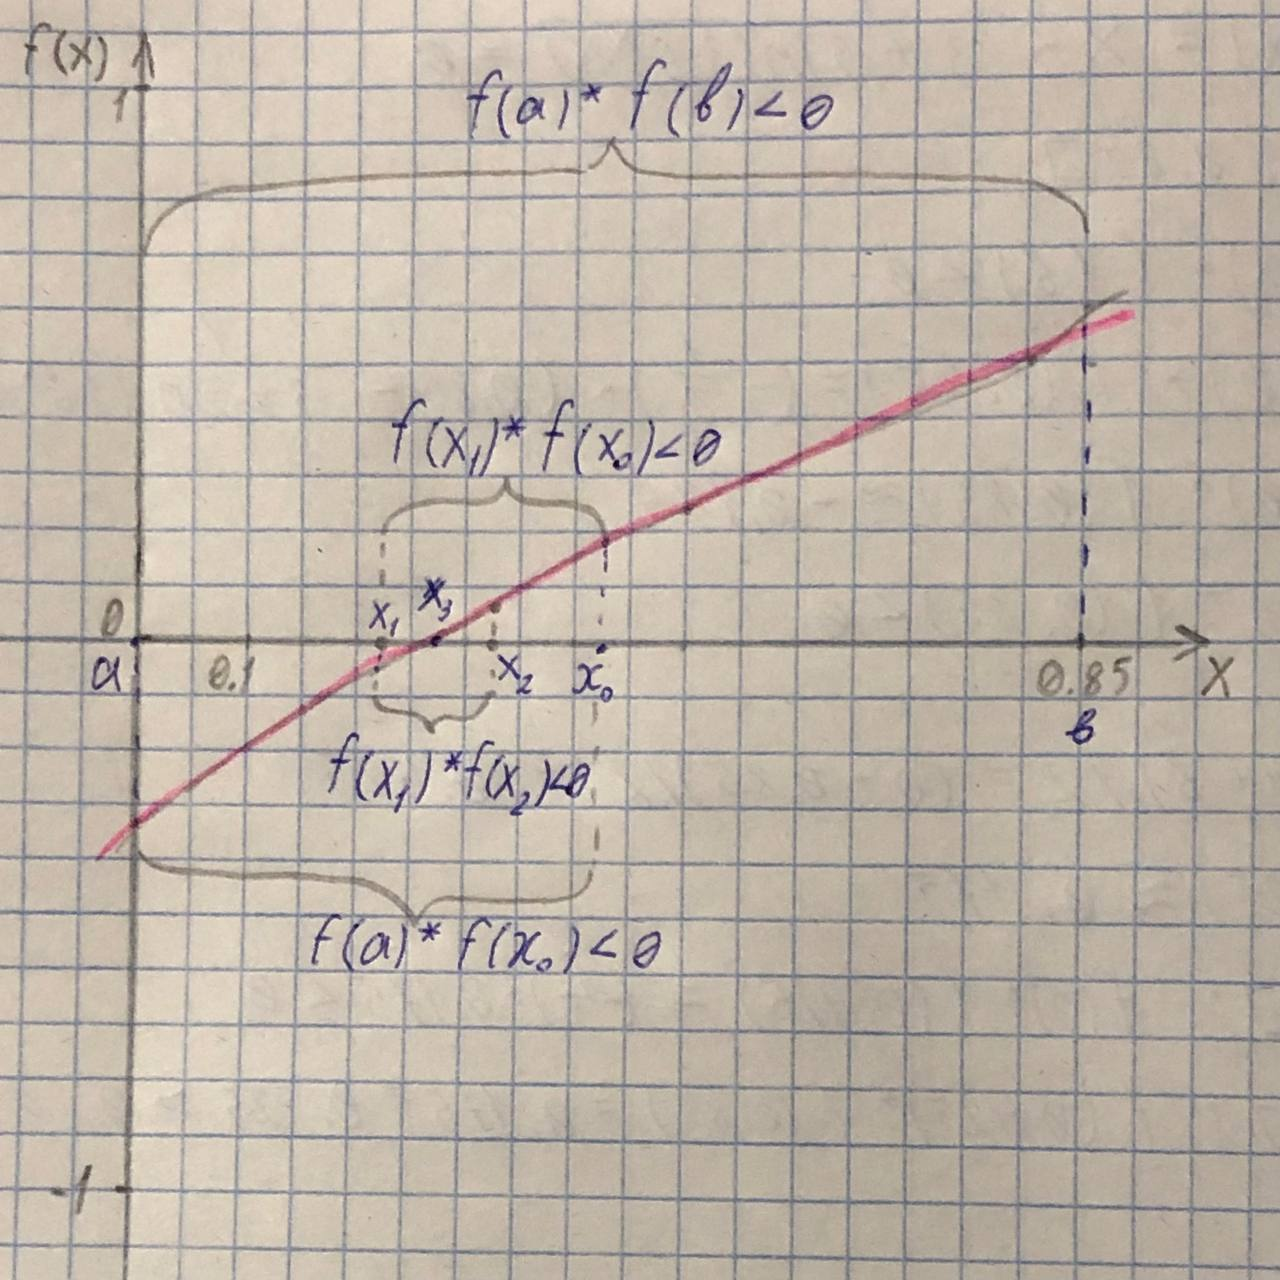 f(x)
1
f(a)* f(в)<0
f(x₁)* f(x₀)<0
0
x₁ x₃
a 0.1 x₂ x₀ 0.85 X
в
f(x₁)*f(x₂)<0
f(a)* f(x₀)<0
-1